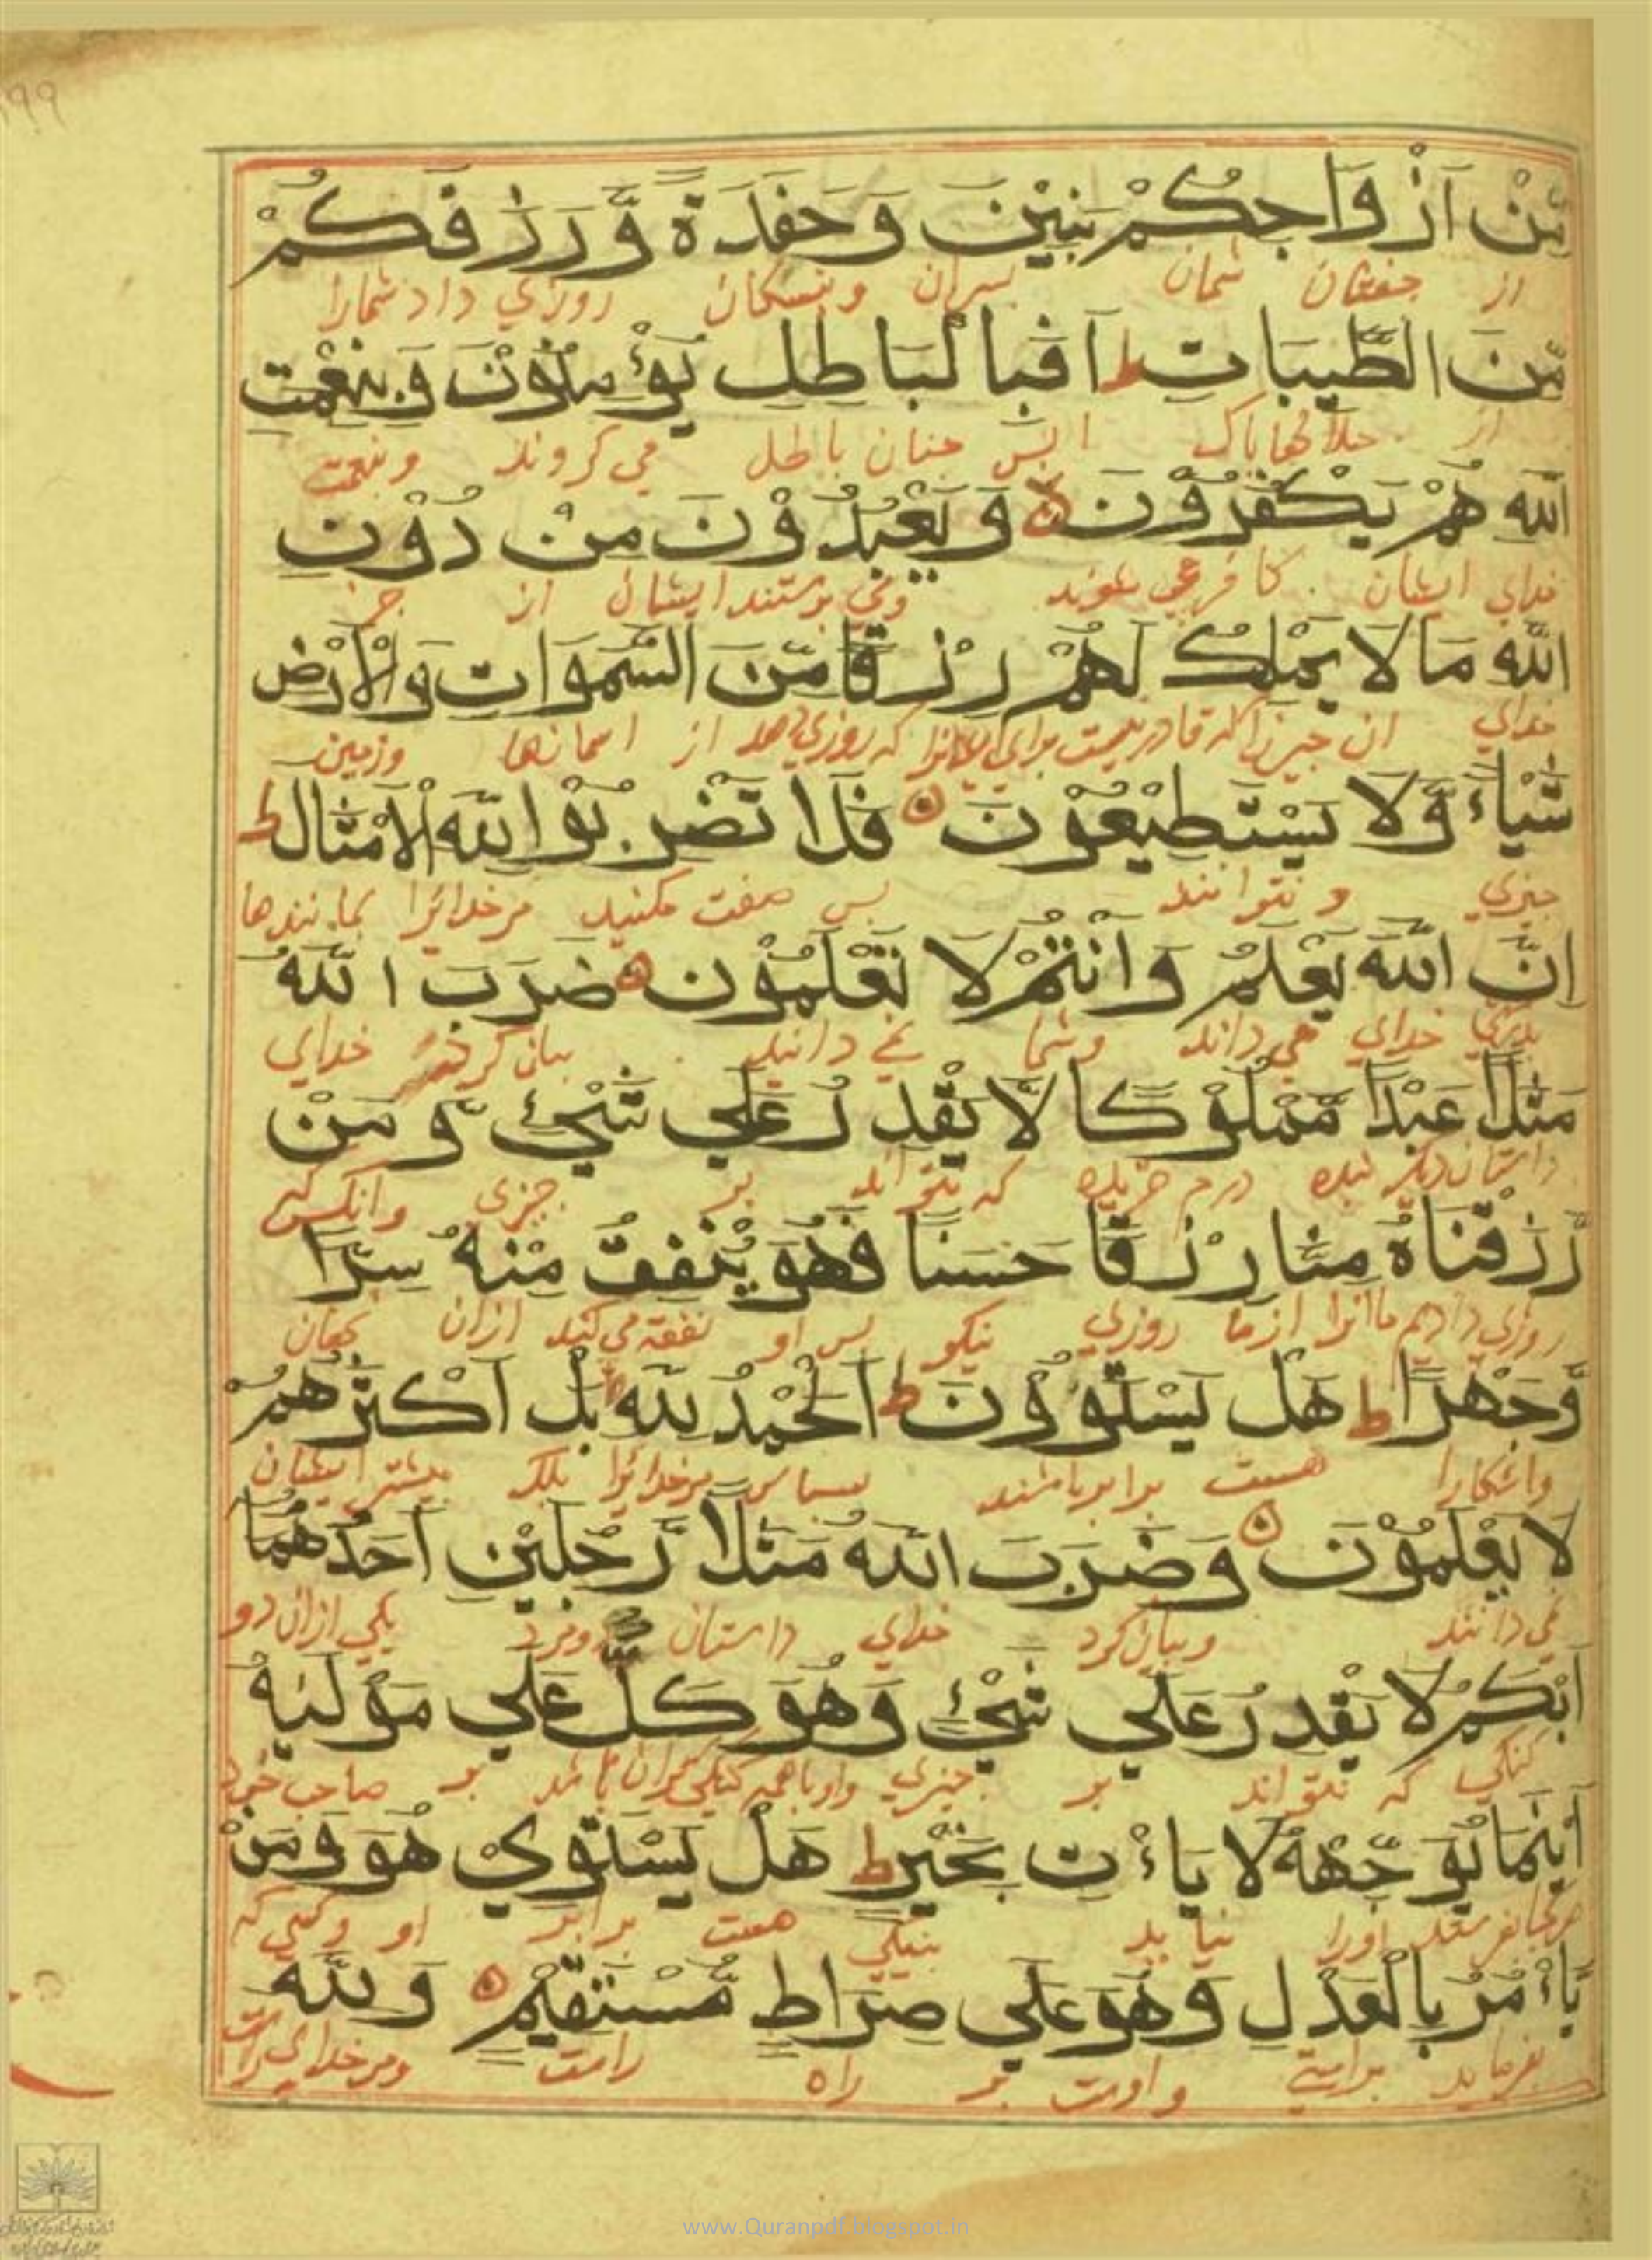 ۹۹
مِّنْ اَزْوَاجِكُمْ بَنِيْنَ وَ حَفَدَةً وَّ رَزَقَكُمْ
از جفتان شمان پسران و نبسكان روزي داد شمارا
مِّنَ الطَّيِّبَاتِ ط اَفَبِالْبَاطِلِ يُؤْمِنُوْنَ وَ بِنِعْمَتِ
از حلالها پاك پس چنان باطل مي كروند و بنعمت
اللّٰهِ هُمْ يَكْفُرُوْنَ لا وَ يَعْبُدُوْنَ مِنْ دُوْنِ
خداي ايشان كافر مي شوند و مي پرستند ايشان از جز
اللّٰهِ مَا لَا يَمْلِكُ لَهُمْ رِزْقًا مِّنَ السَّمٰوَاتِ وَالْاَرْضِ
خداي ان چيز را كه قادر نيست براي كه روزي دهد از اسمانها و زمين
شَيْـًٔا وَّلَا يَسْتَطِيْعُوْنَ فَلَا تَضْرِبُوْا لِلّٰهِ الْاَمْثَالَ ط
چيزي و نتوانند پس صفت مكنيد مر خدائرا بمانندها
اِنَّ اللّٰهَ يَعْلَمُ وَ اَنْتُمْ لَا تَعْلَمُوْنَ ضَرَبَ اللّٰهُ
خداي مي داند و شما نمي دانيد بيان كرد خداي
مَثَلًا عَبْدًا مَّمْلُوْكًا لَّا يَقْدِرُ عَلٰي شَيْءٍ وَّ مَنْ
داستان بنده درم خريده كه نتواند بر چيزي و انكس كه
رَّزَقْنَاهُ مِنَّا رِزْقًا حَسَنًا فَهُوَ يُنْفِقُ مِنْهُ سِرًّا
روزي داديم ما انرا از ما روزي نيكو پس او نفقه مي كند ازان نهان
وَّجَهْرًا ط هَلْ يَسْتَوٗنَ ط اَلْحَمْدُ لِلّٰهِ بَلْ اَكْثَرُهُمْ
و اشكارا هست برابر باشند سپاس مر خدائرا بلكه بيشتر ايشان
لَا يَعْلَمُوْنَ وَ ضَرَبَ اللّٰهُ مَثَلًا رَّجُلَيْنِ اَحَدُهُمَا
نمي دانند و بيان كرد خداي داستان دو مرد يكي ازان دو
اَبْكَمُ لَا يَقْدِرُ عَلٰي شَيْءٍ وَّ هُوَ كَلٌّ عَلٰي مَوْلٰيهُ
كنكي كه نتواند بر چيزي و او باهمه كنكي كران باشد بر صاحب خود
اَيْنَمَا يُوَجِّهْهُ لَا يَاْتِ بِخَيْرٍ ط هَلْ يَسْتَوِيْ هُوَ وَ مَنْ
هر كجا بفرستد اورا نيايد بنيكي هست برابر او و كسي كه
يَّاْمُرُ بِالْعَدْلِ وَ هُوَ عَلٰي صِرَاطٍ مُّسْتَقِيْمٍ وَ لِلّٰهِ
بفرمايد براستي و اوست بر راه راست و مر خداي راست
www.Quranpdf.blogspot.in